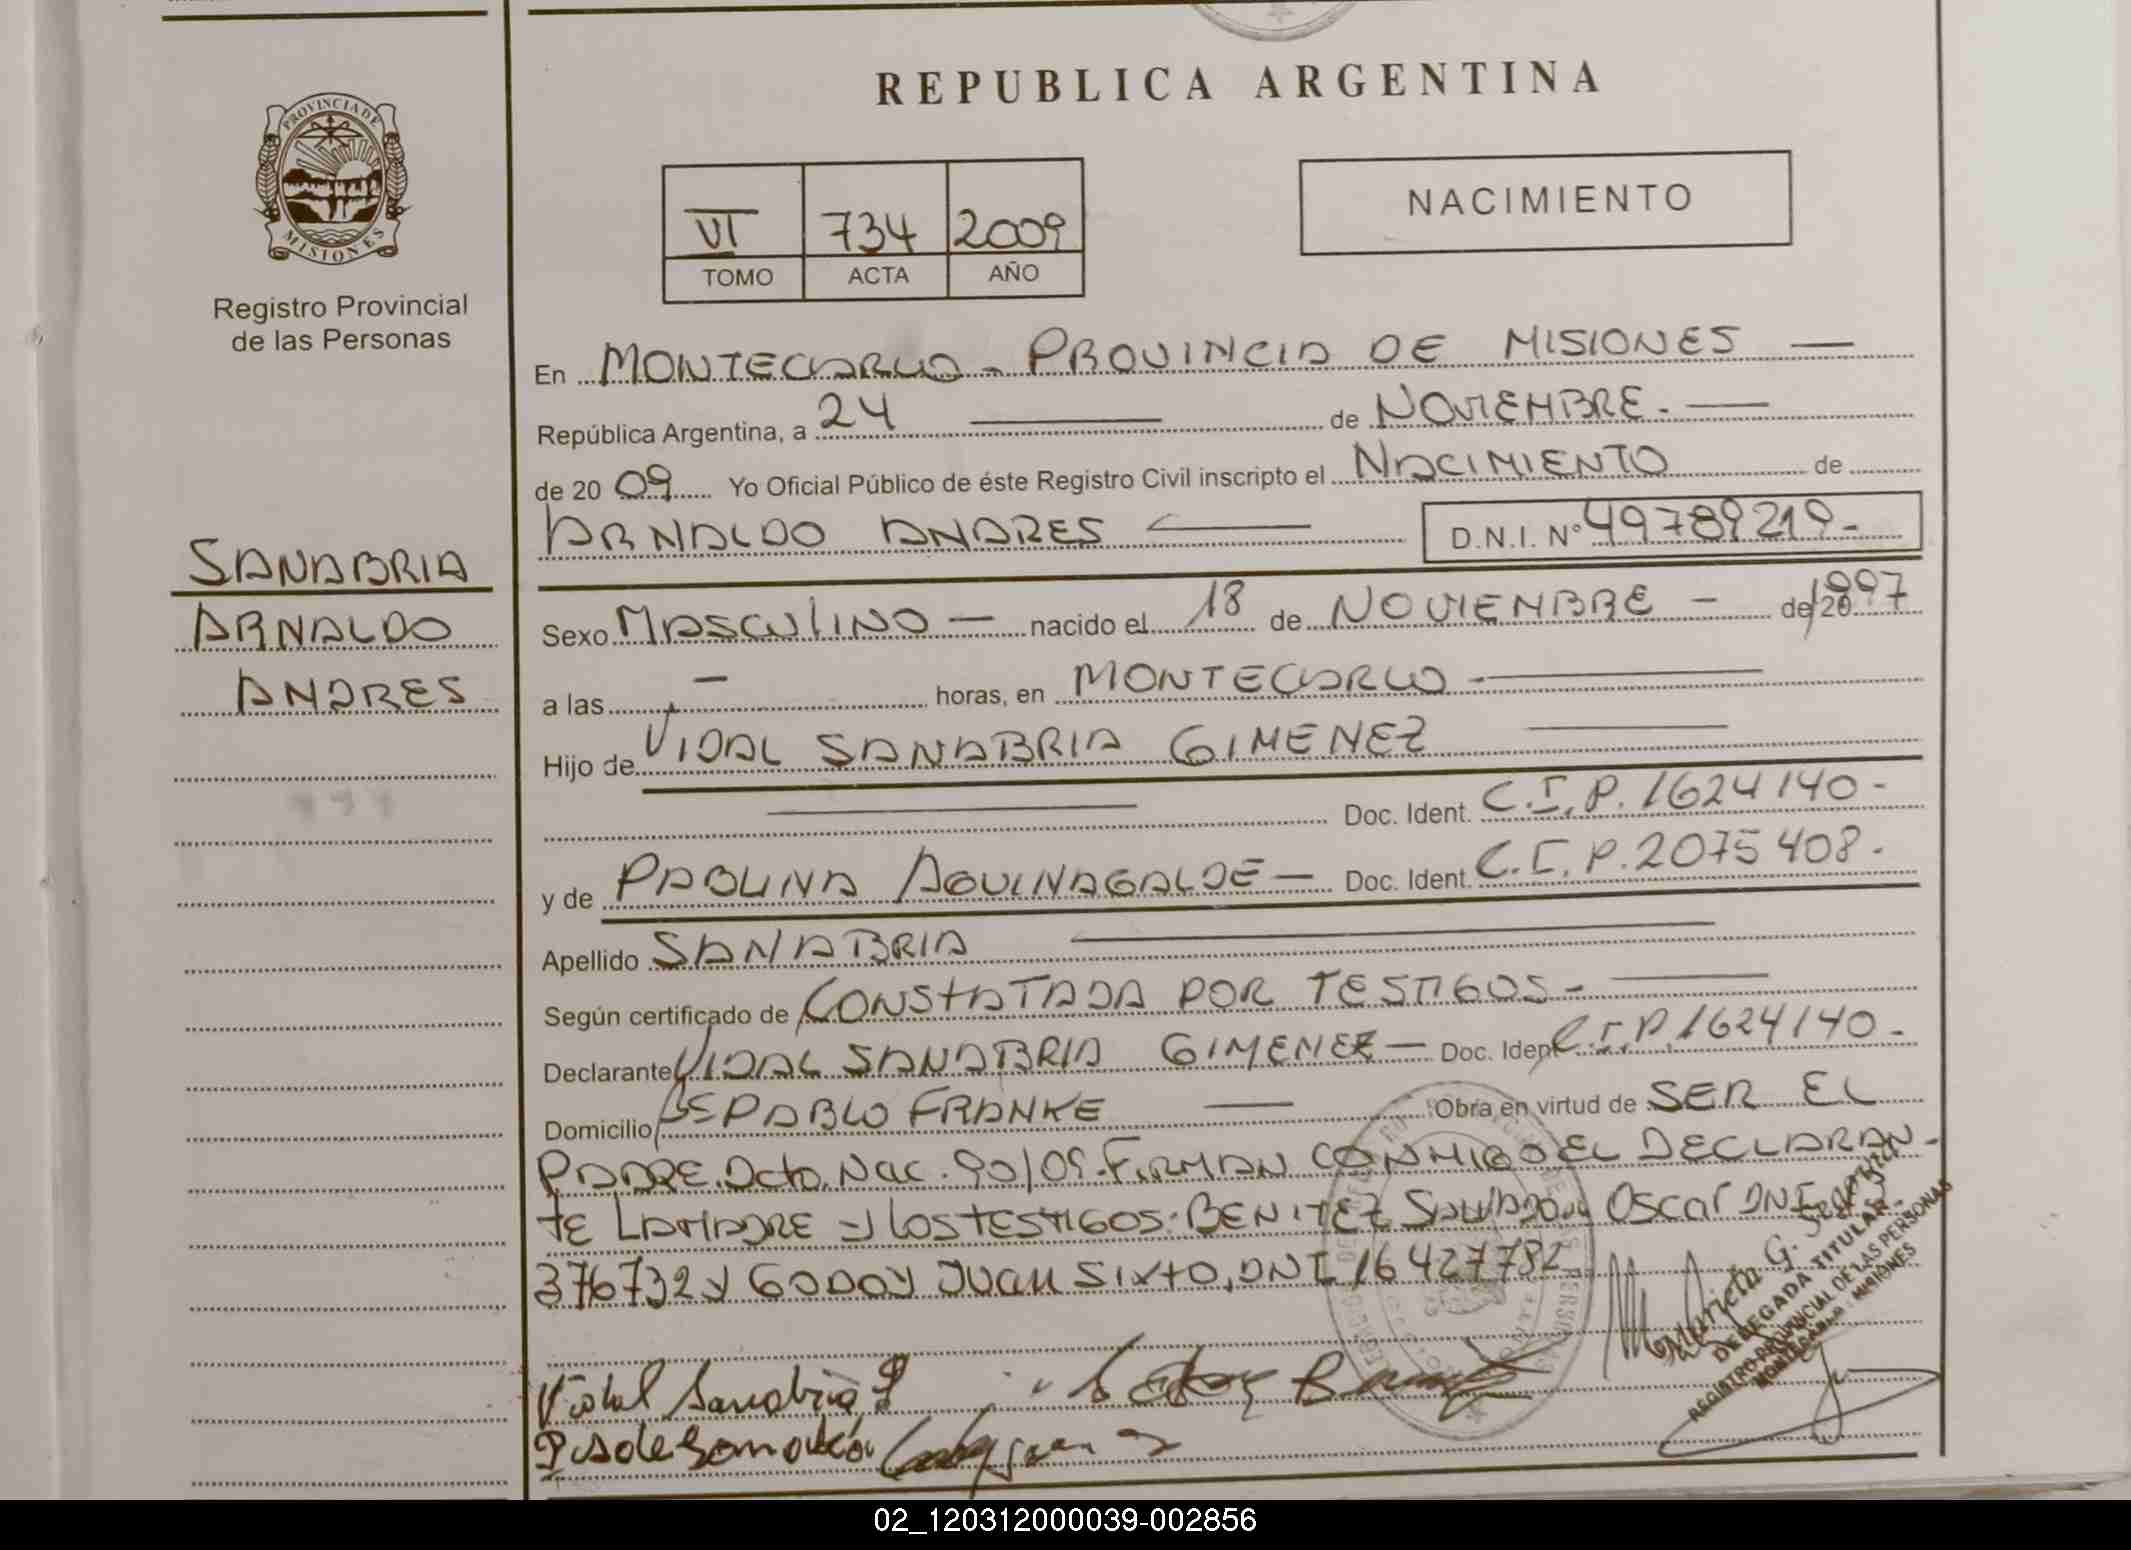 REPUBLICA ARGENTINA
PROVINCIA DE
MISIONES
Registro Provincial
de las Personas
NACIMIENTO
VI 734 2009
TOMO ACTA AÑO
En MONTECARLO - PROVINCIA DE MISIONES —
República Argentina, a 24 — de NOVIEMBRE. —
de 20 09 Yo Oficial Público de éste Registro Civil inscripto el NACIMIENTO de
ARNALDO ANDRES — D.N.I. N° 49789219-
SANABRIA
ARNALDO
ANDRES
Sexo MASCULINO — nacido el 18 de NOVIEMBRE - de 20 1997
a las — horas, en MONTECARLO -
Hijo de VIDAL SANABRIA GIMENEZ —
— Doc. Ident. C.I.P. 1624140-
y de PABLINA AQUINAGALDE — Doc. Ident. C.I.P. 2075408-
Apellido SANABRIA —
Según certificado de CONSTATADA POR TESTIGOS - —
Declarante VIDAL SANABRIA GIMENEZ — Doc. Ident C.I.P 1624140-
Domicilio Bº PABLO FRANKE — Obra en virtud de SER EL
PADRE. Dcto. Nac. 90/09. FIRMAN CONMIGO EL DECLARAN-
TE LA MADRE y LOS TESTIGOS: BENITEZ Oscar DNI
376732 y GODOY JUAN SIXTO, DNI 16427782
Vidal Sanabria G
DELEGADA TITULAR
REGISTRO PROVINCIAL DE LAS PERSONAS
MONTECARLO - MISIONES
02_120312000039-002856